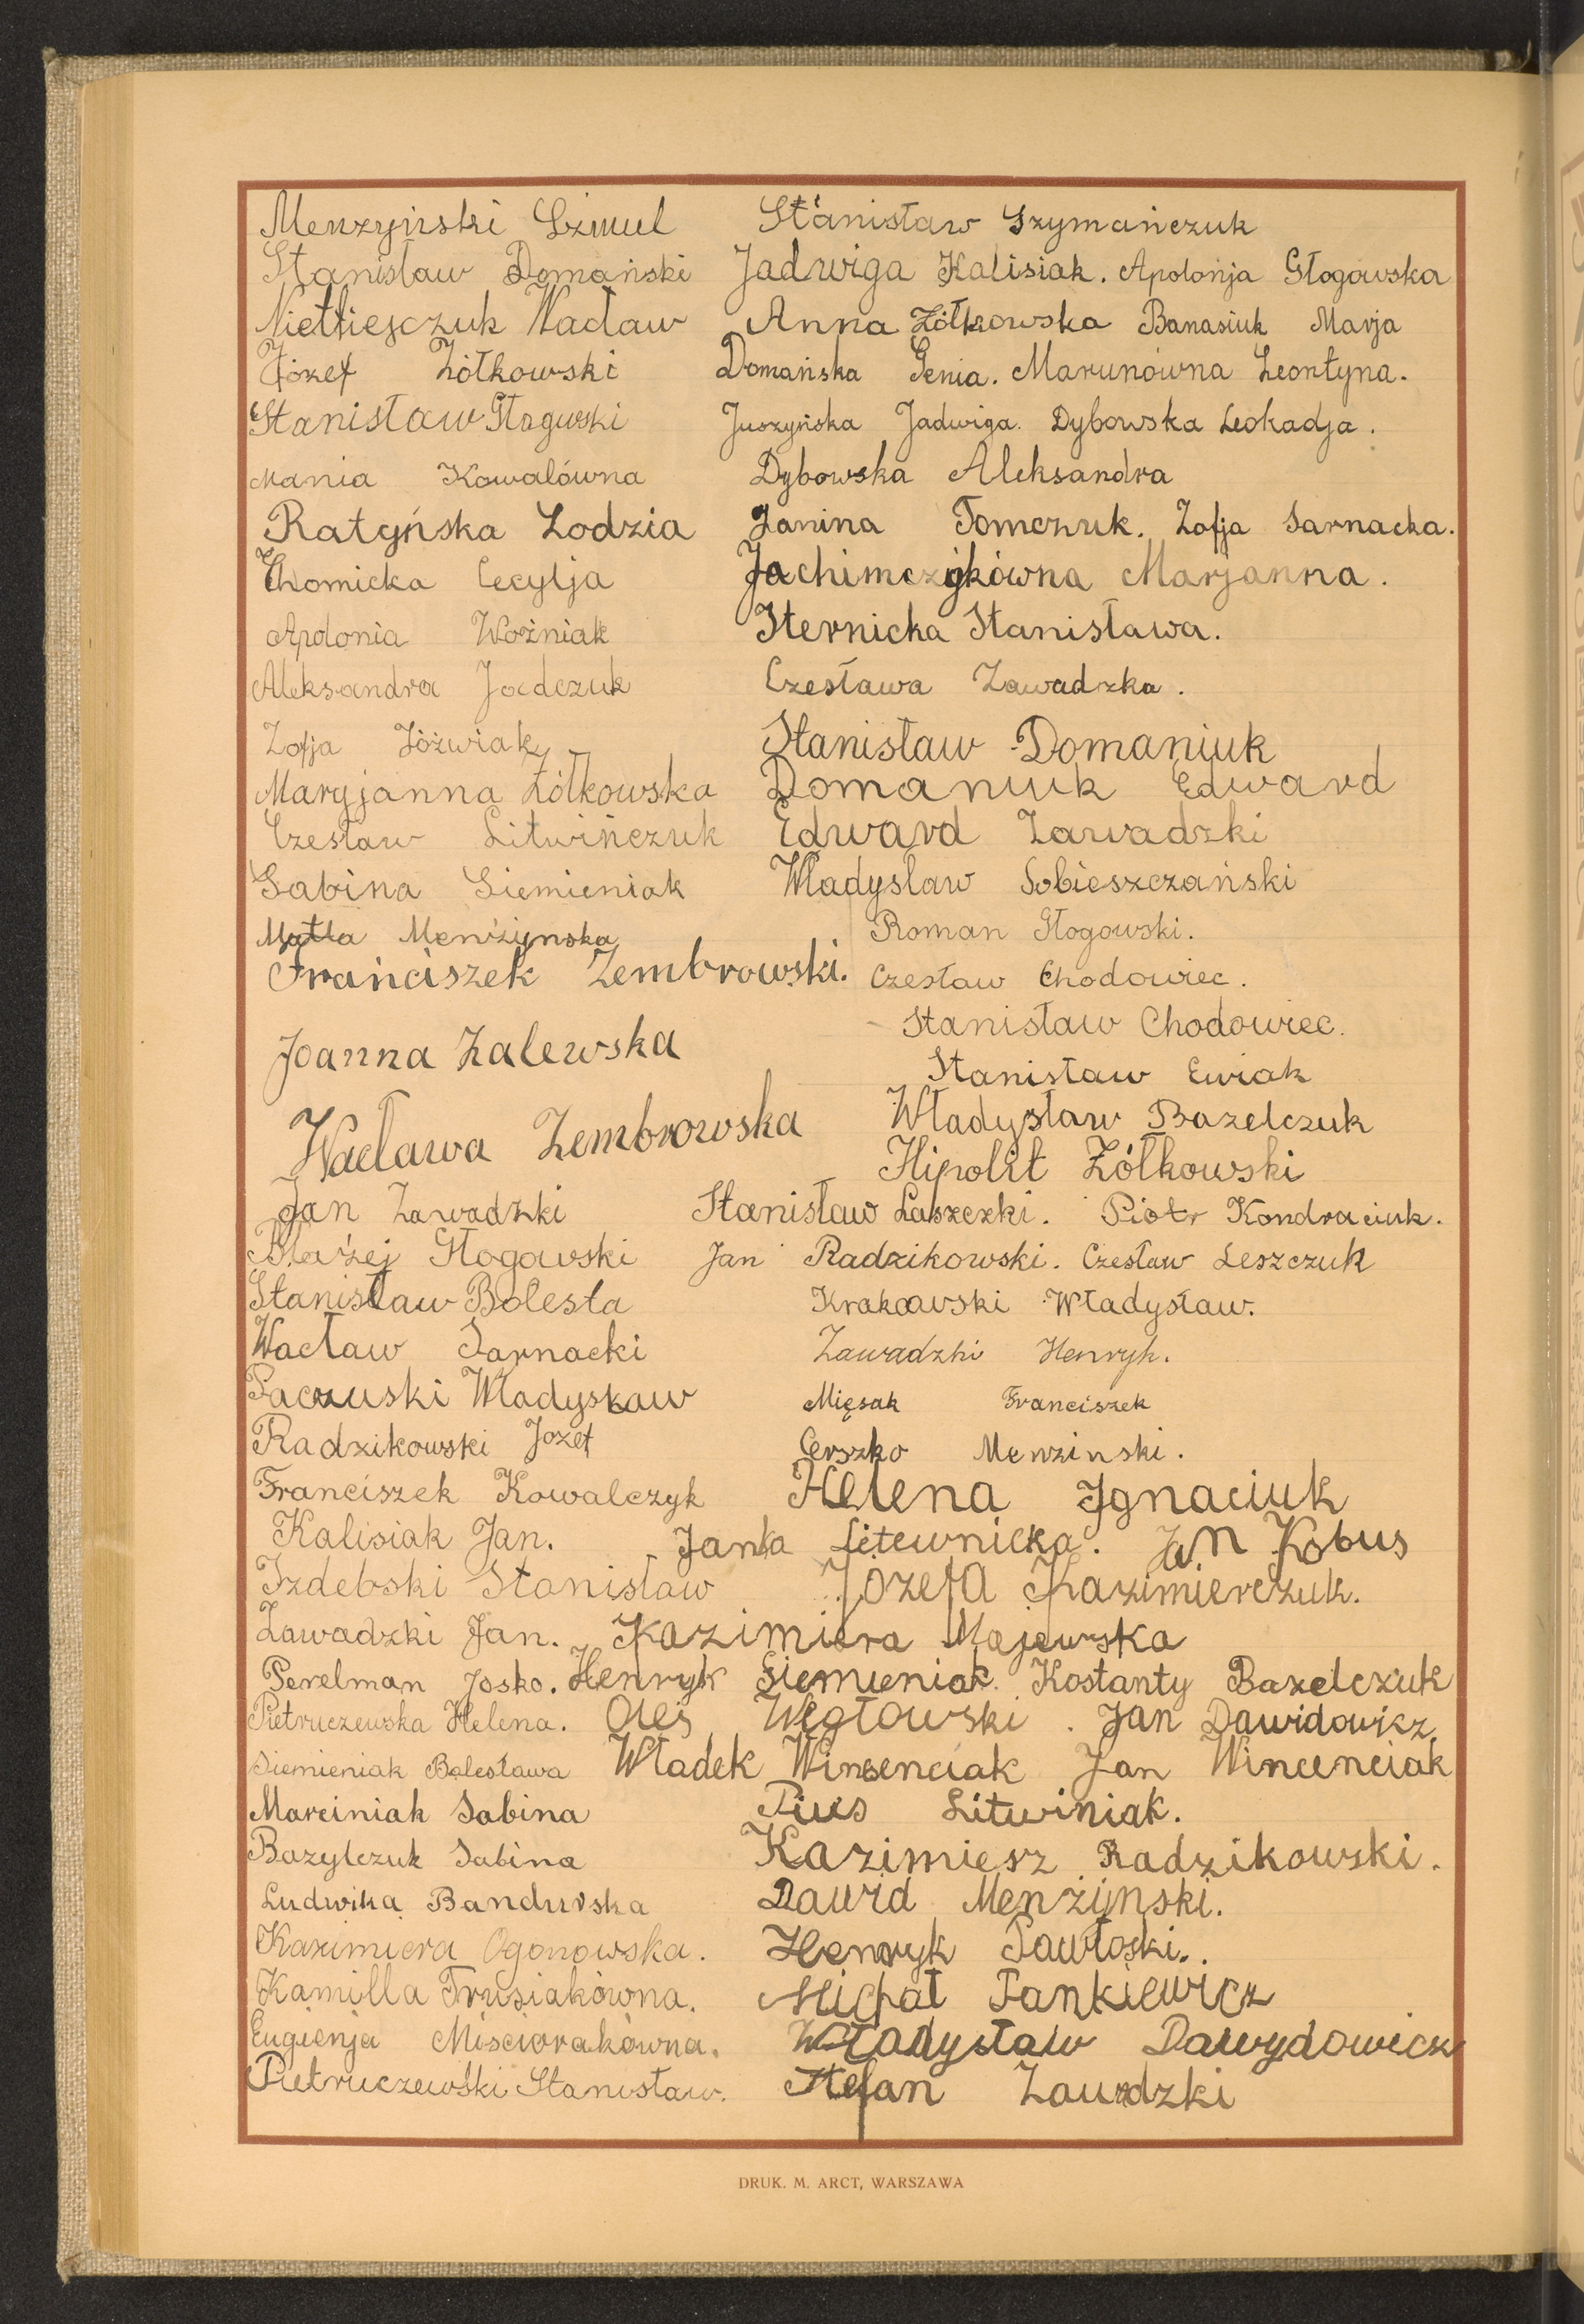 Menzyński Szmul Stanisław Szymańczuk
Stanisław Domański Jadwiga Kalisiak. Apolonja Głogowska
Wacław Anna Żółkowska Banasiuk Marja
Józef Żółkowski Domańska Genia. Marunówna Leontyna.
Stanisław Głogwski Juszyńska Jadwiga. Dybowska Leokadja.
Mania Kowalówna Dybowska Aleksandra
Ratyńska Lodzia Janina Tomczuk. Zofja Sarnacka.
Chomicka Cecylja Jachimczykówna Marjanna.
Apolonia Woźniak Sternicka Stanisława.
Aleksandra Jadczuk Czesława Zawadzka.
Zofja Jóźwiak Stanisław Domaniuk
Maryjanna Żółkowska Domaniuk Edward
Czesław Litwińczuk Edward Zawadzki
Sabina Siemieniak Władysław Sobieszczański
Matla Menżynska Roman Głogowski.
Franciszek Zembrowski. Czesław Chodowiec.
Stanisław Chodowiec.
Joanna Zalewska
Stanisław Ewiak
Wacława Zembrowska Władysław Bazelczuk
Hipolit Żółkowski
Jan Zawadzki Stanisław Laszczki. Piotr Kondraciuk.
Błażej Głogowski Jan Radzikowski. Czesław Leszczuk
Stanisław Bolesta Krakowski Władysław.
Wacław Sarnacki Zawadzki Henryk.
Paczuski Władysław Mięsak Franciszek
Radzikowski Jozef Gerszko Menzinski.
Franciszek Kowalczyk Helena Ignaciuk
Kalisiak Jan. Janka Litewnicka. Jan Kobus
Izdebski Stanisław Józefa Kazimierczuk.
Zawadzki Jan. Kazimiera Majewska
Perelman Josko. Henryk Siemieniak. Kostanty Bazelczuk
Pietruczewska Helena. Oleś Węgłowski. Jan Dawidowicz
Siemieniak Bolesława Władek Wincenciak Jan Wincenciak
Marciniak Sabina Pius Litwiniak.
Bazylczuk Sabina Kazimiesz Radzikowski.
Ludwika Bandurska Dawid Menżynski.
Kazimiera Ogonowska. Henryk Pawłoski.
Kamilla Trusiakówna. Michał Pankiewicz
Eugienja Miściorakówna. Władysław Dawydowicz
Pietruczewski Stanisław. Stefan Zawadzki
DRUK. M. ARCT, WARSZAWA